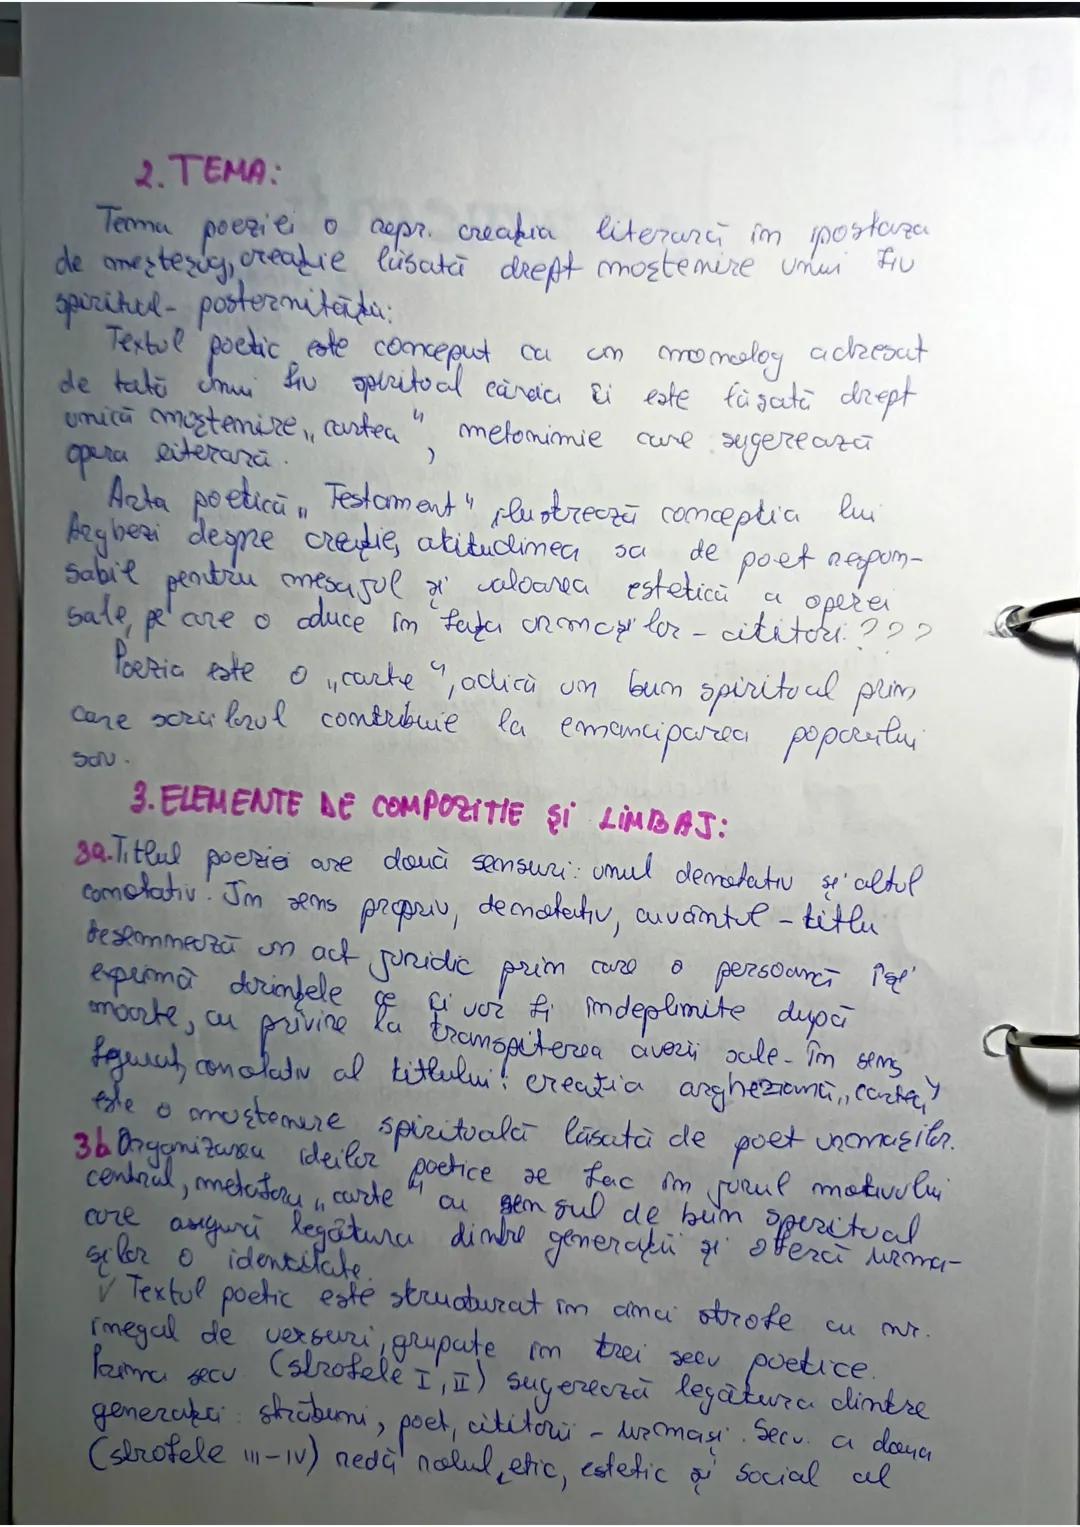 2. TEMA:
Tema poeziei o repr. creația literară în ipostaza
de meșteșug, creație lăsată drept moștenire unui fiu
spiritual - posternității:
Textul poetic este conceput ca un monolog adresat
de tată unui fiu spiritual căruia îi este lăsată drept
unică moștenire „cartea", metonimie care sugerează
opera literară.
Arta poetică „Testament" ilustrează concepția lui
Arghezi despre creație, atitudinea sa de poet respon-
sabil pentru mesajul și valoarea estetică a operei
sale, pe care o aduce în fața urmașilor - cititori. ???
Poezia este o „carte", adică un bun spiritual prin
care scriitorul contribuie la emanciparea poporului
său.
3. ELEMENTE DE COMPOZITIE ȘI LIMBAJ:
3a. Titlul poeziei are două sensuri: unul denotativ și altul
conotativ. În sens propriu, denotativ, cuvântul - titlu
desemnează un act juridic prin care o persoană își
exprimă dorințele ce îi vor fi îndeplinite după
moarte, cu privire la transmiterea averii sale. În sens
figurat, conotativ al titlului: creația argheziană „cartea"
este o moștenire spirituală lăsată de poet urmașilor.
3b Organizarea ideilor poetice se fac în jurul motivului
central, metafora „carte" cu sensul de bun spiritual
care asigură legătura dintre generații și oferă urma-
șilor o identitate.
√ Textul poetic este structurat în cinci strofe cu nr.
inegal de versuri, grupate în trei secv poetice.
Prima secv (strofele I, II) sugerează legătura dintre
generații: străbuni, poet, cititorii - urmași. Secv. a doua
(strofele III-IV) redă rolul etic, estetic și social al